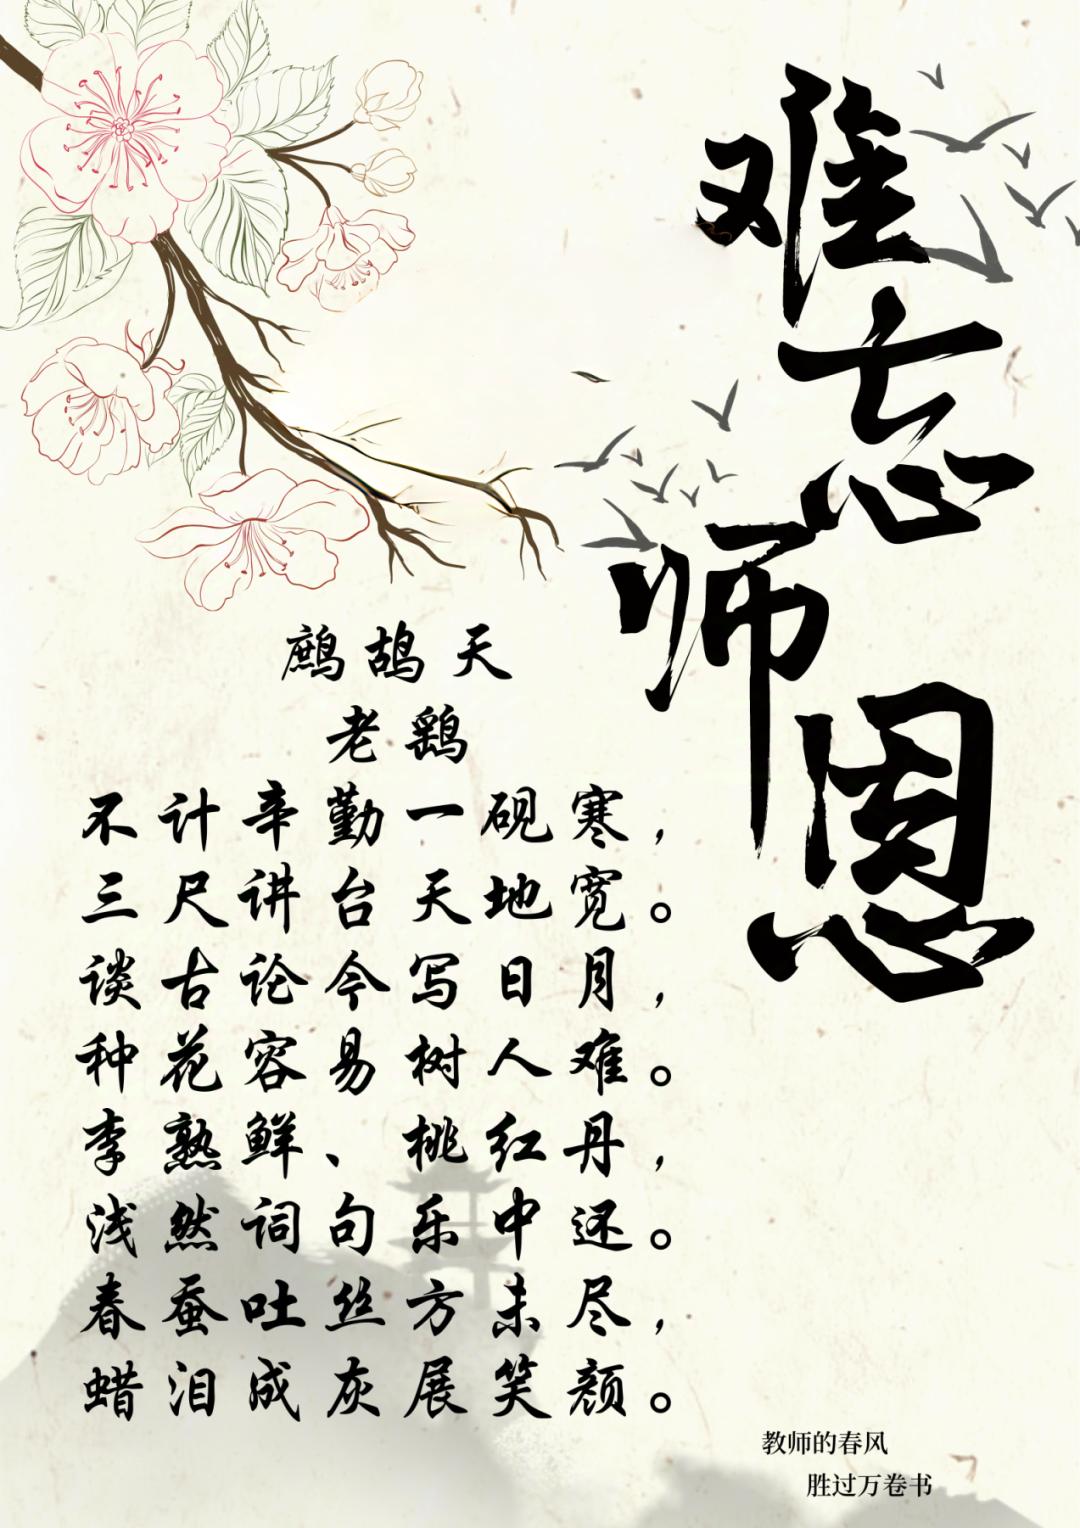 难忘师恩
鹧鸪天
老鹞
不计辛勤一砚寒，
三尺讲台天地宽。
谈古论今写日月，
种花容易树人难。
李熟鲜、桃红丹，
浅然词句乐中还。
春蚕吐丝方未尽，
蜡泪成灰展笑颜。
教师的春风
胜过万卷书